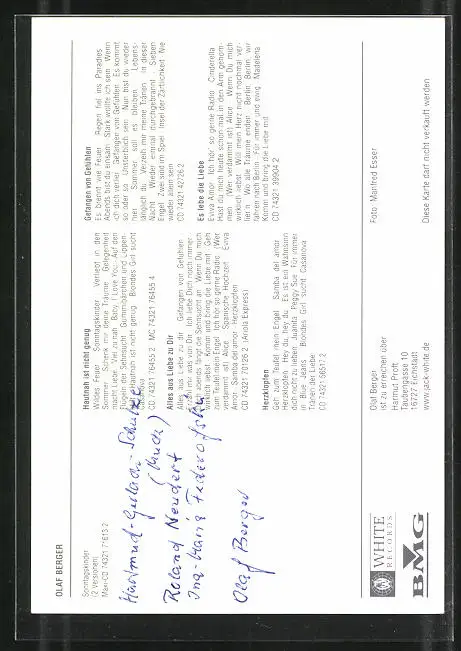 OLAF BERGER
Sonntagskinder
(2 Versionen)
Maxi-CD 74321 71613 2
Hautnah ist nicht genug
Wildes Feuer Sonntagskinder Verliebt in den
Sommer Schenk mir deine Träume Gelegenheit
macht Liebe Viel zu nah Baby I Love You Auf den
Flügeln der Sehnsucht Gummibärchen und Lippen
Hautnah ist nicht genug Blondes Girl sucht
CD 74321 76455 2 MC 74321 76455 4
Alles aus Liebe zu Dir
Alles aus Liebe zu dir Gefangen von Gefühlen
Erzähl mir was von Dir Ich liebe Dich noch immer
Doch abends fängt die Sehnsucht an Wenn Du mich
wirklich liebst Komm und bring die Liebe mit Geh
zum Teufel mein Engel Ich hör so gerne Radio (Wer
versäumt ist) Alice Spanische Hochzeit Evviva
Amor Samba del amor Herzklopfen
CD 74321 70126 2 (Ariola Express)
Herzklopfen
Geh zum Teufel mein Engel Samba del amor
Herzklopfen Hey du, hey du Es ist ein Wahnsinn
dich nicht zu lieben Juanita Peggy Sue Für immer
in Blue Jeans Blondes Girl sucht Casanova
Tränen der Liebe
CD 74321 56517 2
Gefangen von Gefühlen
Es brennt wie Feuer Regen fiel ins Paradies
Abends bist du einsam Stark wollte ich sein Wenn
ich dich verlier Gefangen von Gefühlen Es kommt
so oder so Unsterblich sein Nun bist du wieder
hier Sommer soll es bleiben Lebens-
länglich du Verzeih mir meine Tränen In dieser
Nacht Wieder einmal durchgebrannt Sieben
Engel Zwei sind im Spiel Insel der Zärtlichkeit Nie
wieder allein sein
CD 74321 42726 2
Es lebe die Liebe
Evviva Amor Ich hör so gerne Radio Cinderella
Hast du mich heute schon mal in den Arm genom-
men (Wer versäumt ist) Alice Wenn Du mich
wirklich liebst Will mein Herz nicht nochmal ver-
lier'n Wo alle Träume enden Berlin, Berlin, wir
fahren nach Berlin Für immer und ewig Madelena
Komm und bring die Liebe mit
CD 74321 39904 2
Hartmud-Gerlach-Schulze
Roland Neudert
Ina-Maria Federowski
Olaf Berger
WHITE
RECORDS
BMG
Olaf Berger
ist zu erreichen über
Hartmut Prott
Taubengasse 10
16727 Eichstädt
www.jack-white.de
Foto: Manfred Esser
Diese Karte darf nicht verkauft werden